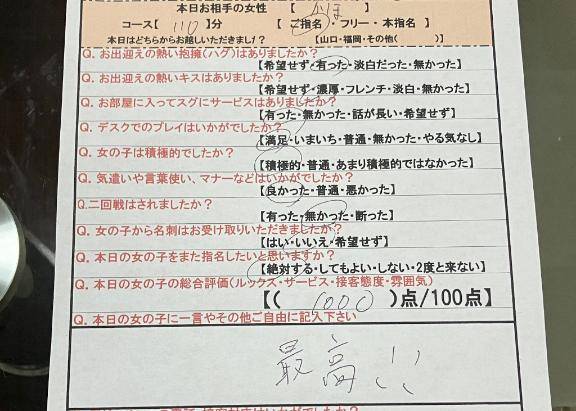 本日お相手の女性 【 かほ 】
コース【 110 】分 【 ご指名・フリー・本指名】
本日はどちらからお越しいただきました？ 【山口・福岡・その他( )】
Q. お出迎えの熱い抱擁(ハグ)はありましたか？
【希望せず・有った・淡白だった・無かった】
Q. お出迎えの熱いキスはありましたか？
【希望せず・濃厚・フレンチ・淡白・無かった】
Q. お部屋に入ってスグにサービスはありましたか？
【有った・無かった・話が長い・希望せず】
Q. デスクでのプレイはいかがでしたか？
【満足・いまいち・普通・無かった・やる気なし】
Q. 女の子は積極的でしたか？
【積極的・普通・あまり積極的ではなかった】
Q. 気遣いや言葉使い、マナーなどはいかがでしたか？
【良かった・普通・悪かった】
Q.二回戦はされましたか？
【有った・無かった・断った】
Q. 女の子から名刺はお受け取りいただきましたか？
【はい・いいえ・希望せず】
Q. 本日の女の子をまた指名したいと思いますか？
【絶対する・してもよい・しない・2度と来ない】
Q. 本日の女の子の総合評価(ルックス・サービス・接客態度・雰囲気)
【( 1000 )点/100点】
Q. 本日の女の子に一言やその他ご自由に記入下さい
最高!!